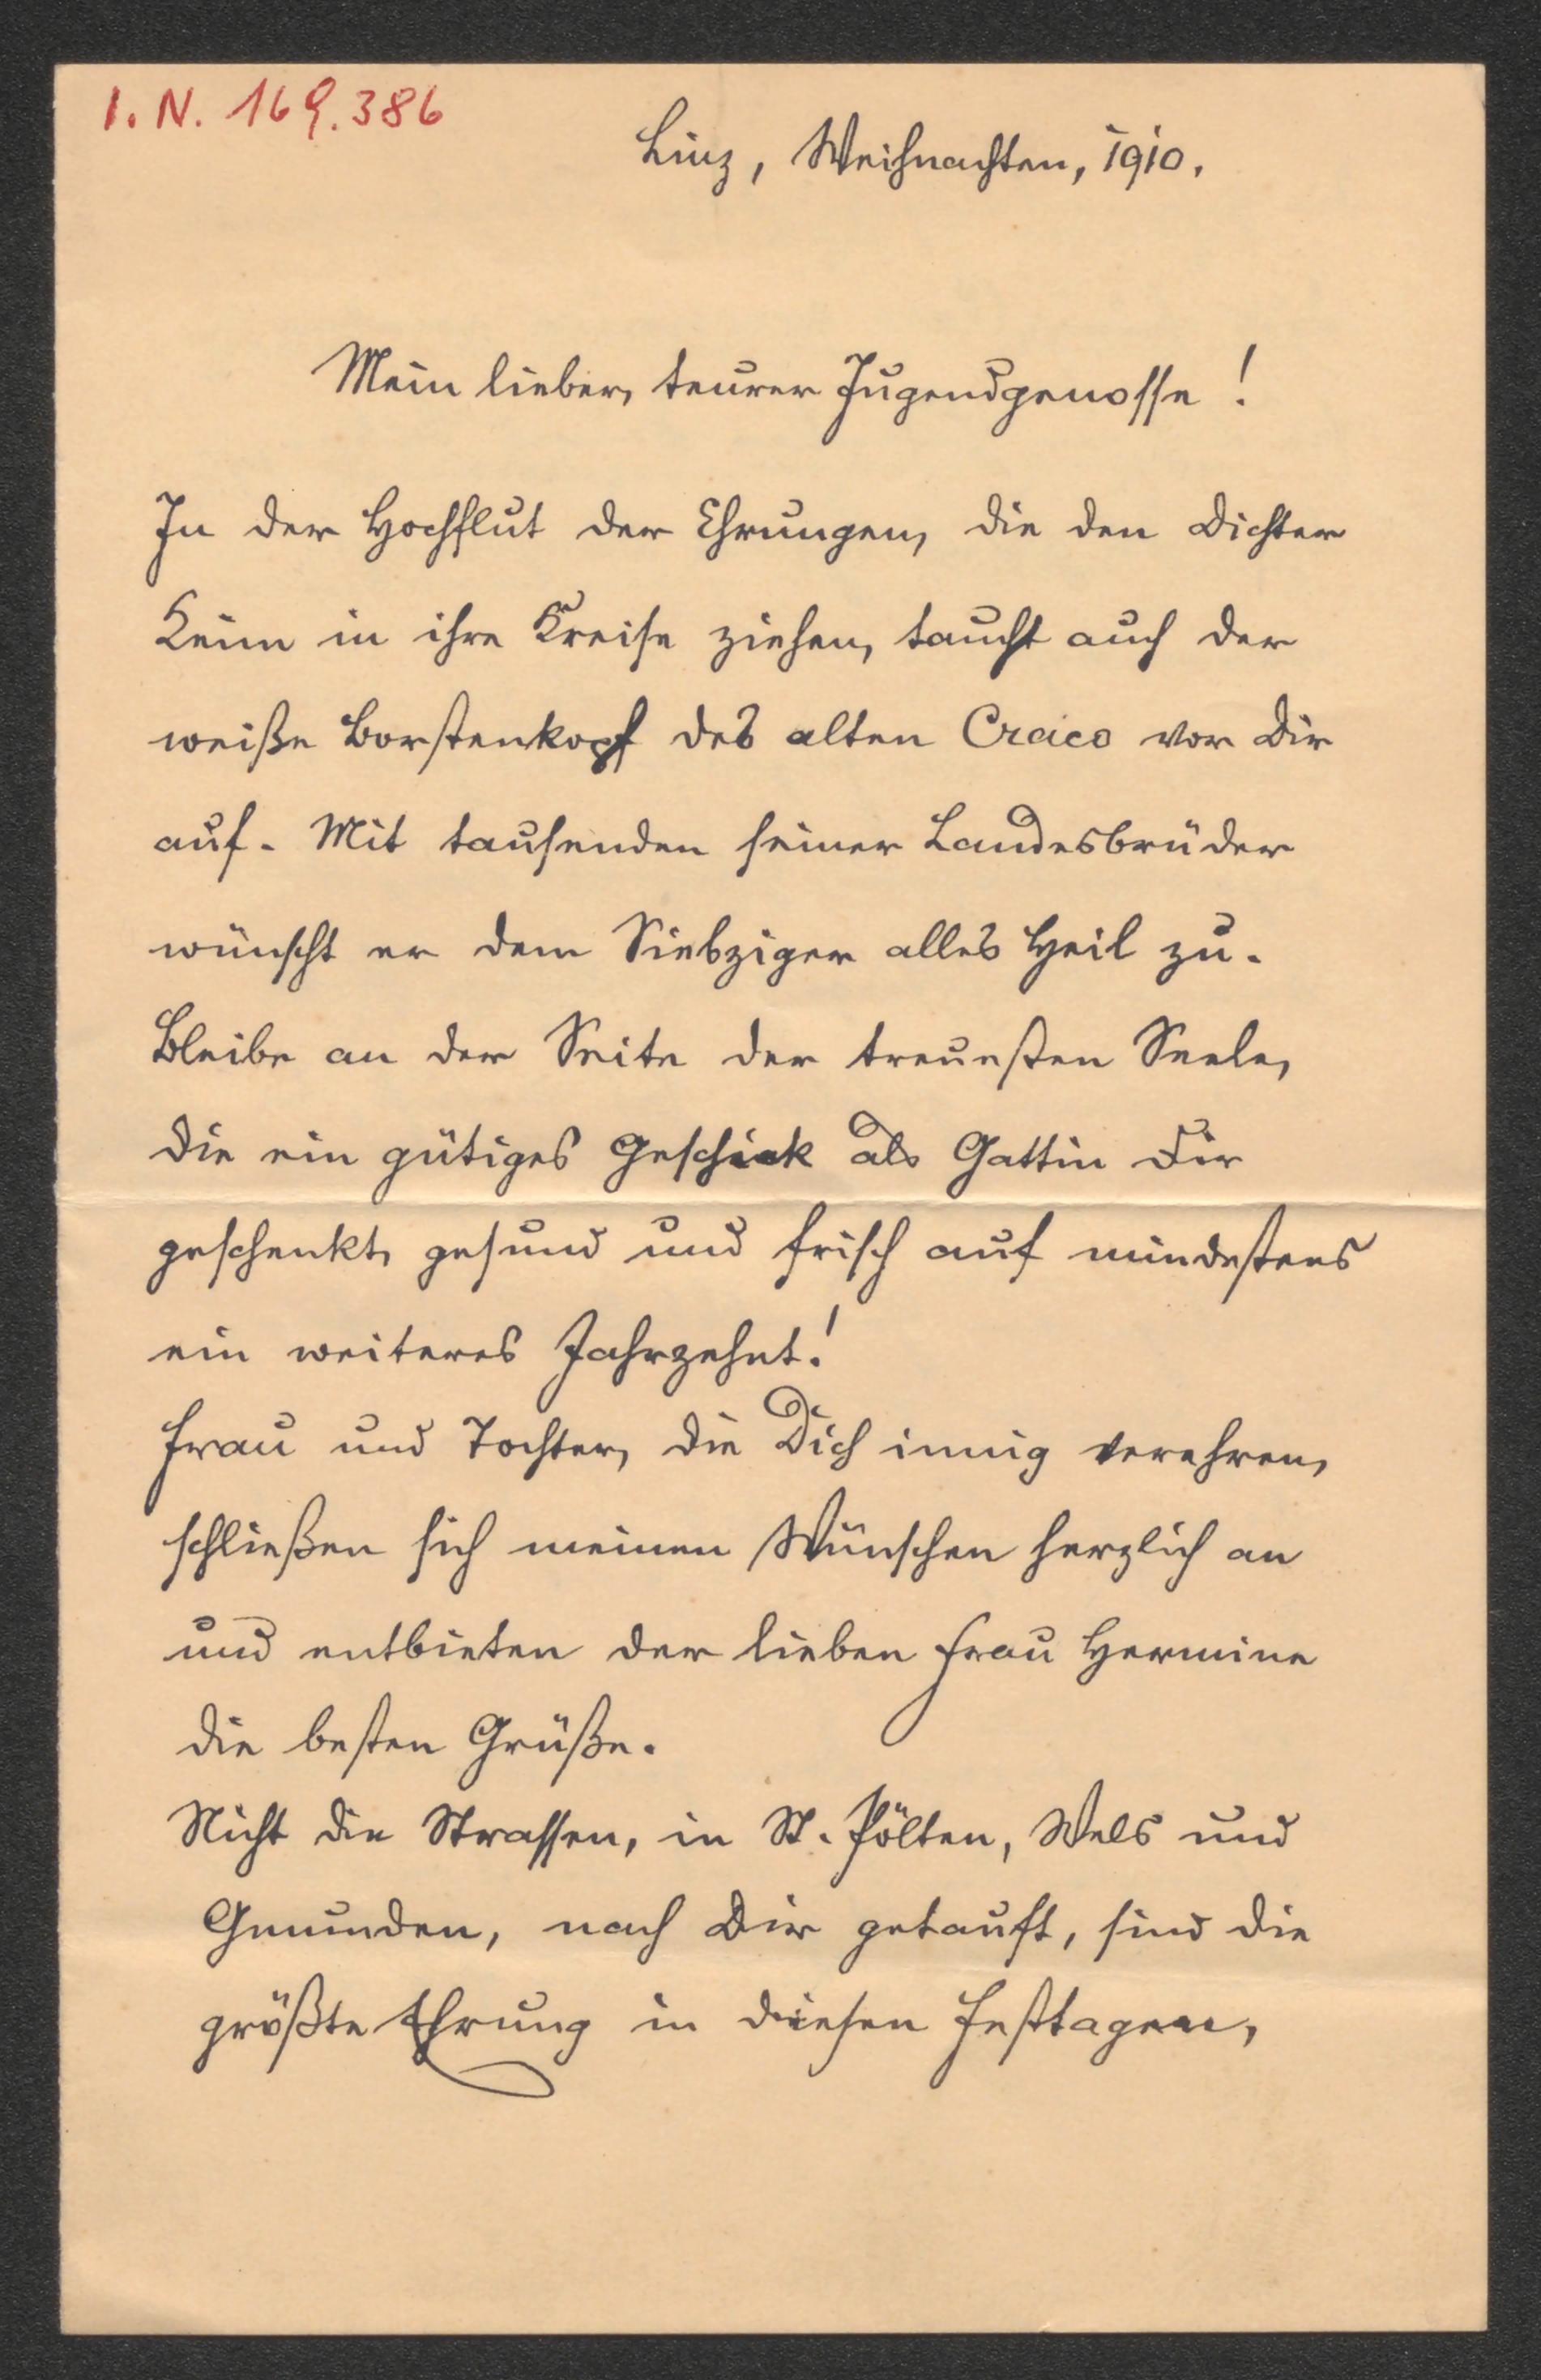 I. N. 169.386
Linz, Weihnachten, 1910.
Mein lieber, teurer Jugendgenosse!
In der Hochflut der Ehrungen, die den Dichter
Keim in ihre Kreise ziehen, taucht auch der
weiße Borstenkopf des alten Craico vor Dir
auf. Mit tausenden seiner Landesbrüder
wünscht er dem Siebziger alles Heil zu.
Bleibe an der Seite der treuesten Seele,
die ein gütiges Geschick als Gattin Dir
geschenkt, gesund und frisch auf mindestens
ein weiteres Jahrzehnt!
Frau und Tochter, die Dich innig verehren,
schließen sich meinen Wünschen herzlich an
und entbieten der lieben Frau Hermine
die besten Grüße.
Nicht die Strassen, in St. Pölten, Wels und
Gmunden, nach Dir getauft, sind die
größte Ehrung in diesen Festtagen,